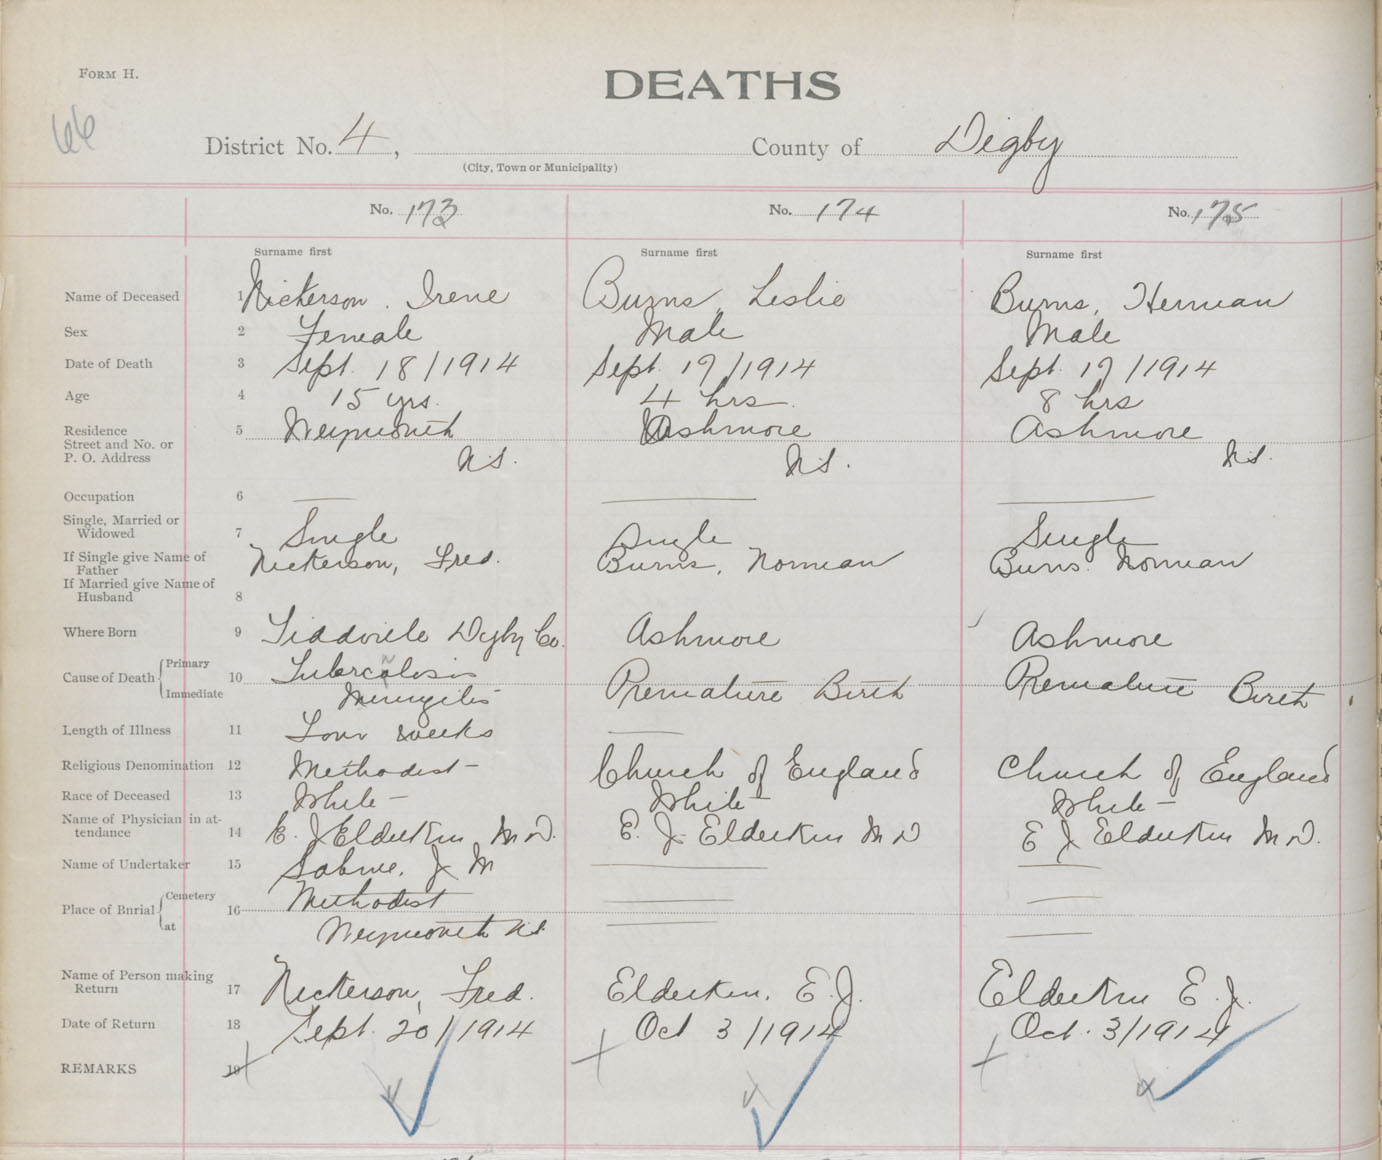 FORM H.
DEATHS
66
District No. 4, County of Digby
(City, Town or Municipality)
No. 173 No. 174 No. 175
Surname first Surname first Surname first
Name of Deceased 1 Nickerson, Irene Burns, Leslie Burns, Herman
Sex 2 Female Male Male
Date of Death 3 Sept. 18/1914 Sept. 17/1914 Sept. 17/1914
Age 4 15 yrs. 4 hrs. 8 hrs
Residence 5 Weymouth Ashmore Ashmore
Street and No. or
P. O. Address N.S. N.S. N.S.
Occupation 6
Single, Married or
Widowed 7 Single Single Single
If Single give Name of
Father Nickerson, Fred. Burns, Norman Burns. Norman
If Married give Name of
Husband 8
Where Born 9 Tiddville Digby Co. Ashmore Ashmore
Cause of Death Primary 10 Tuberculosis Premature Birth Premature Birth
Immediate Meningitis
Length of Illness 11 Four weeks
Religious Denomination 12 Methodist Church of England Church of England
Race of Deceased 13 White White White
Name of Physician in at-
tendance 14 E. J Elderkin M.D. E. J. Elderkin M D E J Elderkin M.D.
Name of Undertaker 15 Sabine, J M
Place of Burial Cemetery 16 Methodist
at Weymouth N.S.
Name of Person making
Return 17 Nickerson, Fred. Elderkin, E.J. Elderkin E.J.
Date of Return 18 Sept. 20/1914 Oct 3/1914 Oct. 3/1914
REMARKS 19